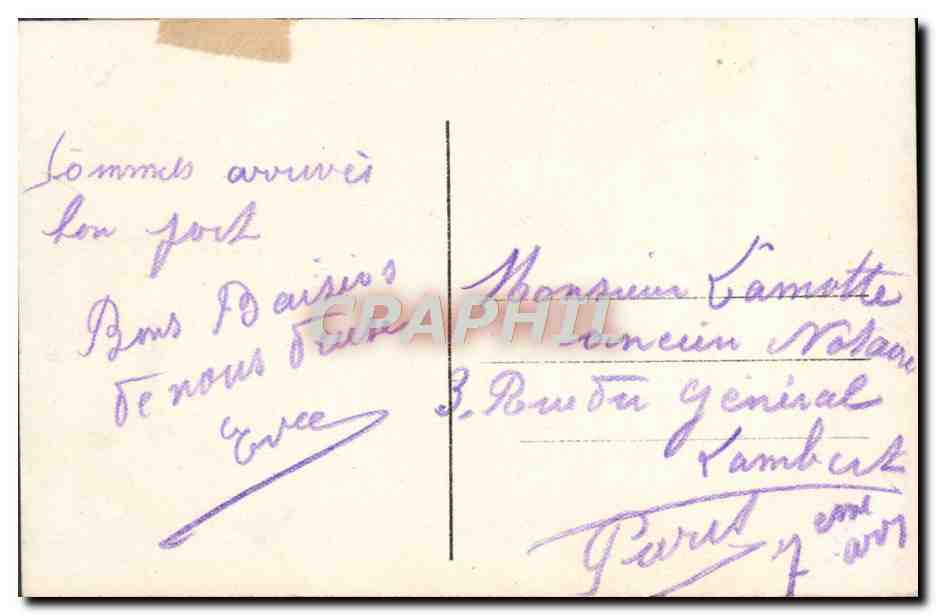 Sommes arrivés
bon port
Bons Baisers
de nous deux
Monsieur Lamotte
ancien Notaire
3, Rue du Général
Lambert
Paris 7 eme arr
CPAPHIL